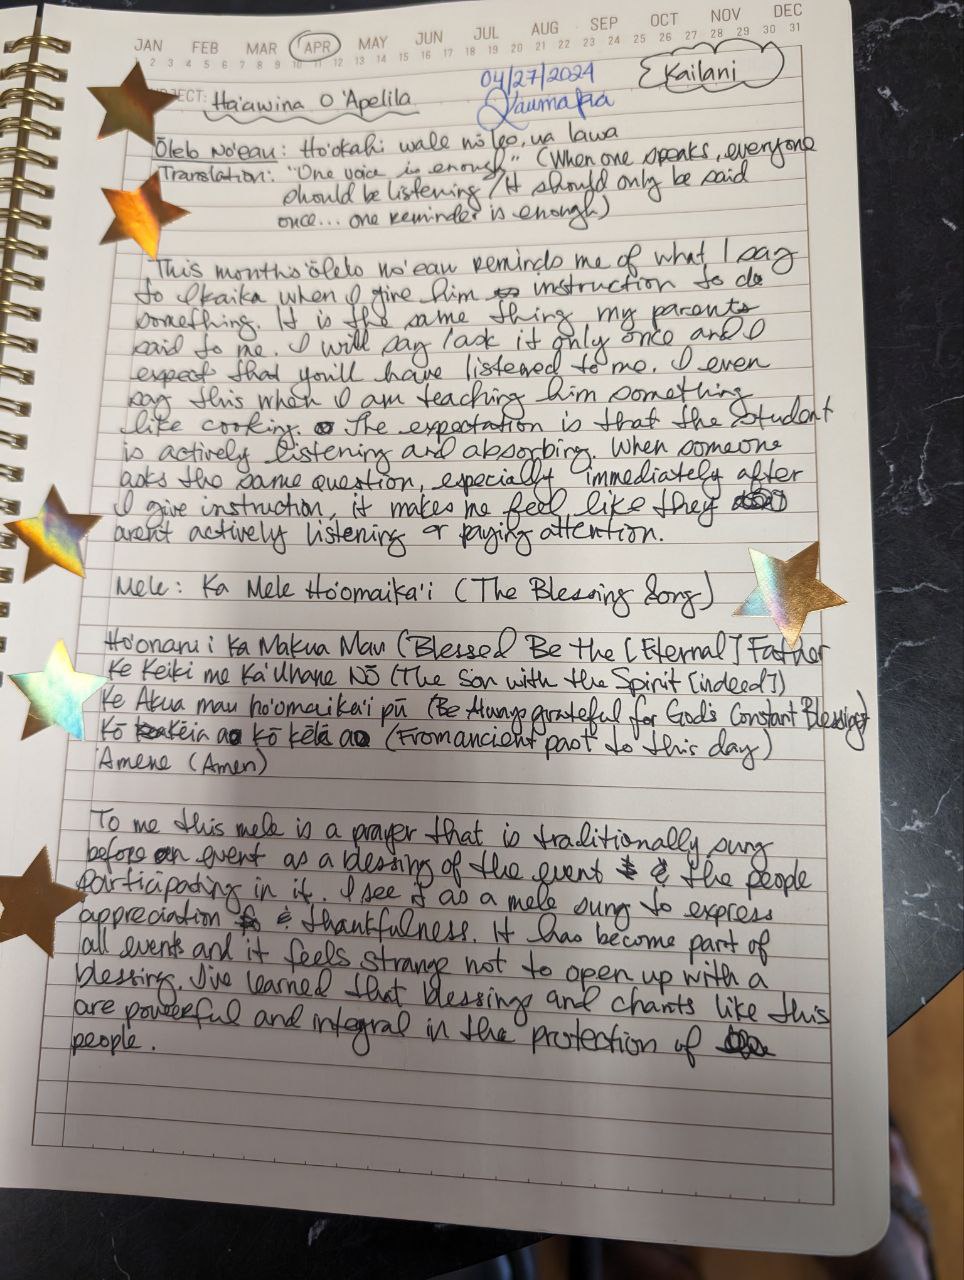 JAN FEB MAR APR MAY JUN JUL AUG SEP OCT NOV DEC
2 3 4 5 6 7 8 9 10 11 12 13 14 15 16 17 18 19 20 21 22 23 24 25 26 27 28 29 30 31
04/27/2024
Kailani
Ha'awina O 'Apelila
Ōlelo No'eau: Ho'okahi wale nō leo, ua lawa
Translation: "One voice is enough" (When one speaks, everyone
should be listening / It should only be said
once... one reminder is enough)
This months 'ōlelo no'eau reminds me of what I say
to Ikaika when I give him instruction to do
something. It is the same thing my parents
said to me. I will say/ask it only once and I
expect that you'll have listened to me. I even
say this when I am teaching him something
like cooking. The expectation is that the student
is actively listening and absorbing. When someone
asks the same question, especially immediately after
I give instruction, it makes me feel like they
arent actively listening or paying attention.
Mele: Ka Mele Ho'omaika'i (The Blessing Song)
Ho'onani i Ka Makua Mau (Blessed Be the [Eternal] Father
Ke Keiki me Ka 'Uhane Nō (The Son with the Spirit [indeed])
Ke Akua mau ho'omaika'i pū (Be Always grateful for God's Constant Blessings)
Kō kēia ao kō kēlā ao (From ancient past to this day)
'Amene (Amen)
To me this mele is a prayer that is traditionally sung
before an event as a blessing of the event & the people
participating in it. I see it as a mele sung to express
appreciation & thankfulness. It has become part of
all events and it feels strange not to open up with a
blessing. I've learned that blessings and chants like this
are powerful and integral in the protection of
people.